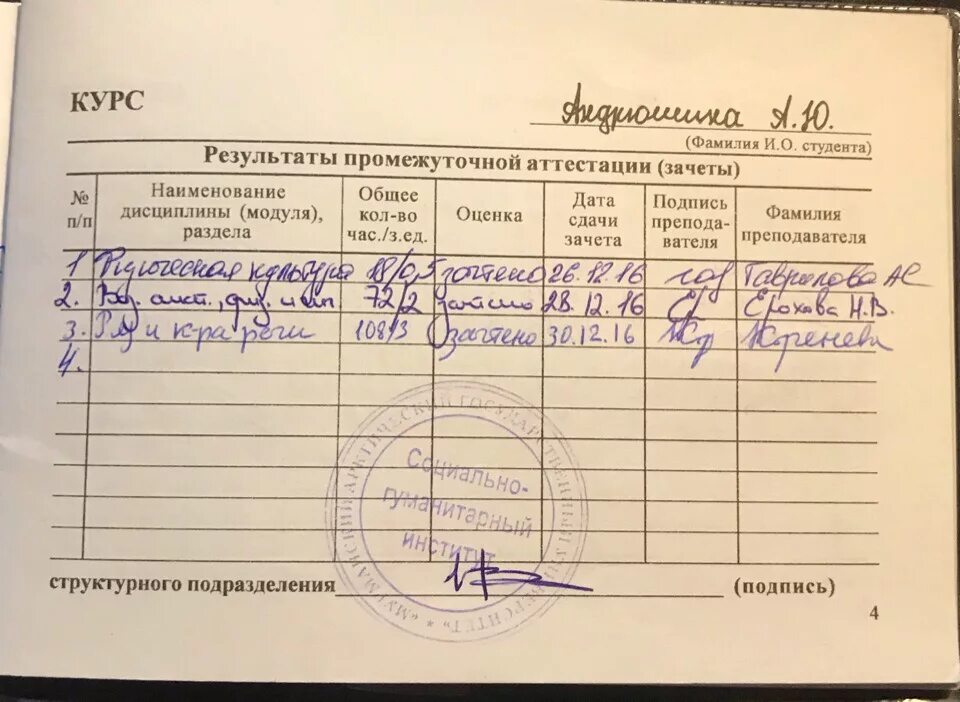 КУРС
Андрюшина А.Ю.
(Фамилия И.О. студента)
Результаты промежуточной аттестации (зачеты)
№ п/п
Наименование дисциплины (модуля), раздела
Общее кол-во час./з.ед.
Оценка
Дата сдачи зачета
Подпись препода-вателя
Фамилия преподавателя
1 Физическая культура 18/0,5 зачтено 26.12.16 Гаврилова АС
2. 72/2 зачтено 28.12.16 Ер Ерохова Н.В.
3. РЯ и к-ра речи 108/3 зачтено 30.12.16 Коренева
4.
МУРМАНСКИЙ АРКТИЧЕСКИЙ ГОСУДАРСТВЕННЫЙ УНИВЕРСИТЕТ
Социально-
гуманитарный
институт
структурного подразделения (подпись)
4